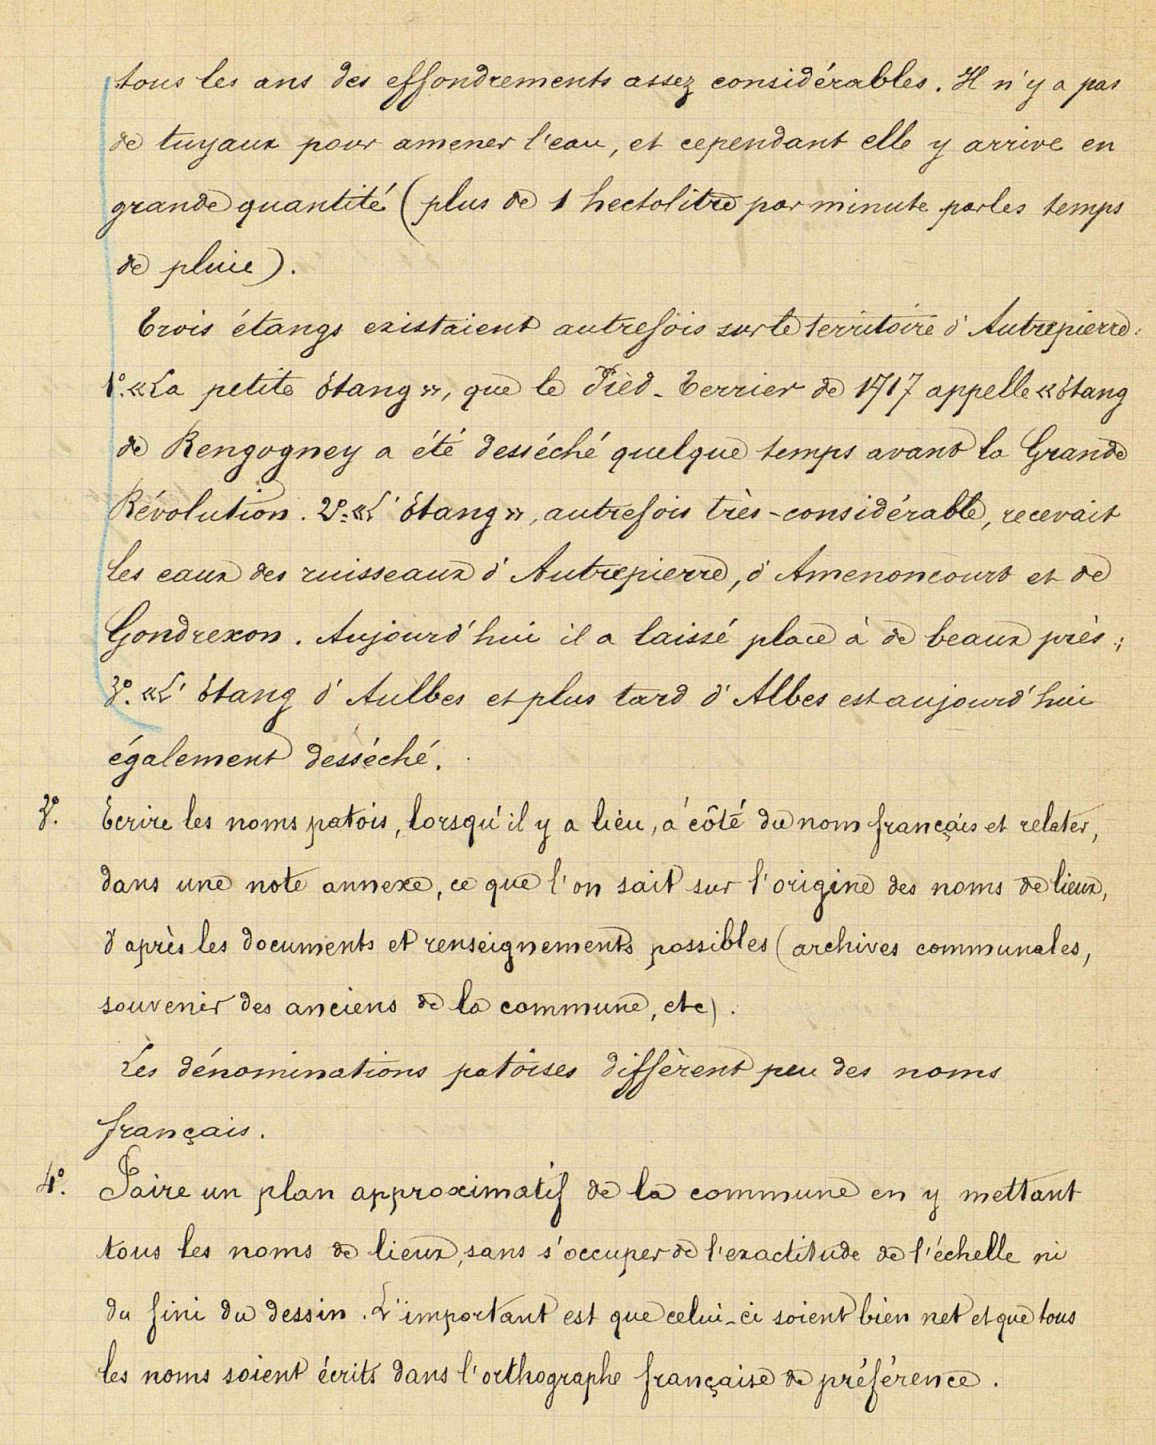 tous les ans des effondrements assez considérables. Il n'y a pas
de tuyaux pour amener l'eau, et cependant elle y arrive en
grande quantité (plus de 1 hectolitre par minute par les temps
de pluie).
Trois étangs existaient autrefois sur le territoire d'Autrepierre :
1°. «La petite Etang», que le Pièd-Terrier de 1717 appelle «Etang
de Rengogney a été desséché quelque temps avant la Grande
Révolution. 2°= «L'Etang», autrefois très-considérable, recevait
les eaux des ruisseaux d'Autrepierre, d'Amenoncourt et de
Gondrexon. Aujourd'hui il a laissé place à de beaux près ;
3°. «L'Etang d'Aulbes et plus tard d'Albes est aujourd'hui
également desséché.
3°. Ecrire les noms patois, lorsqu'il y a lieu, à côté du nom français et relater,
dans une note annexe, ce que l'on sait sur l'origine des noms de lieux,
d'après les documents et renseignements possibles (archives communales,
souvenir des anciens de la commune, etc).
Les dénominations patoises diffèrent peu des noms
français.
4°. Faire un plan approximatif de la commune en y mettant
tous les noms de lieux, sans s'occuper de l'exactitude de l'échelle ni
du fini du dessin. L'important est que celui-ci soient bien net et que tous
les noms soient écrits dans l'orthographe française de préférence.